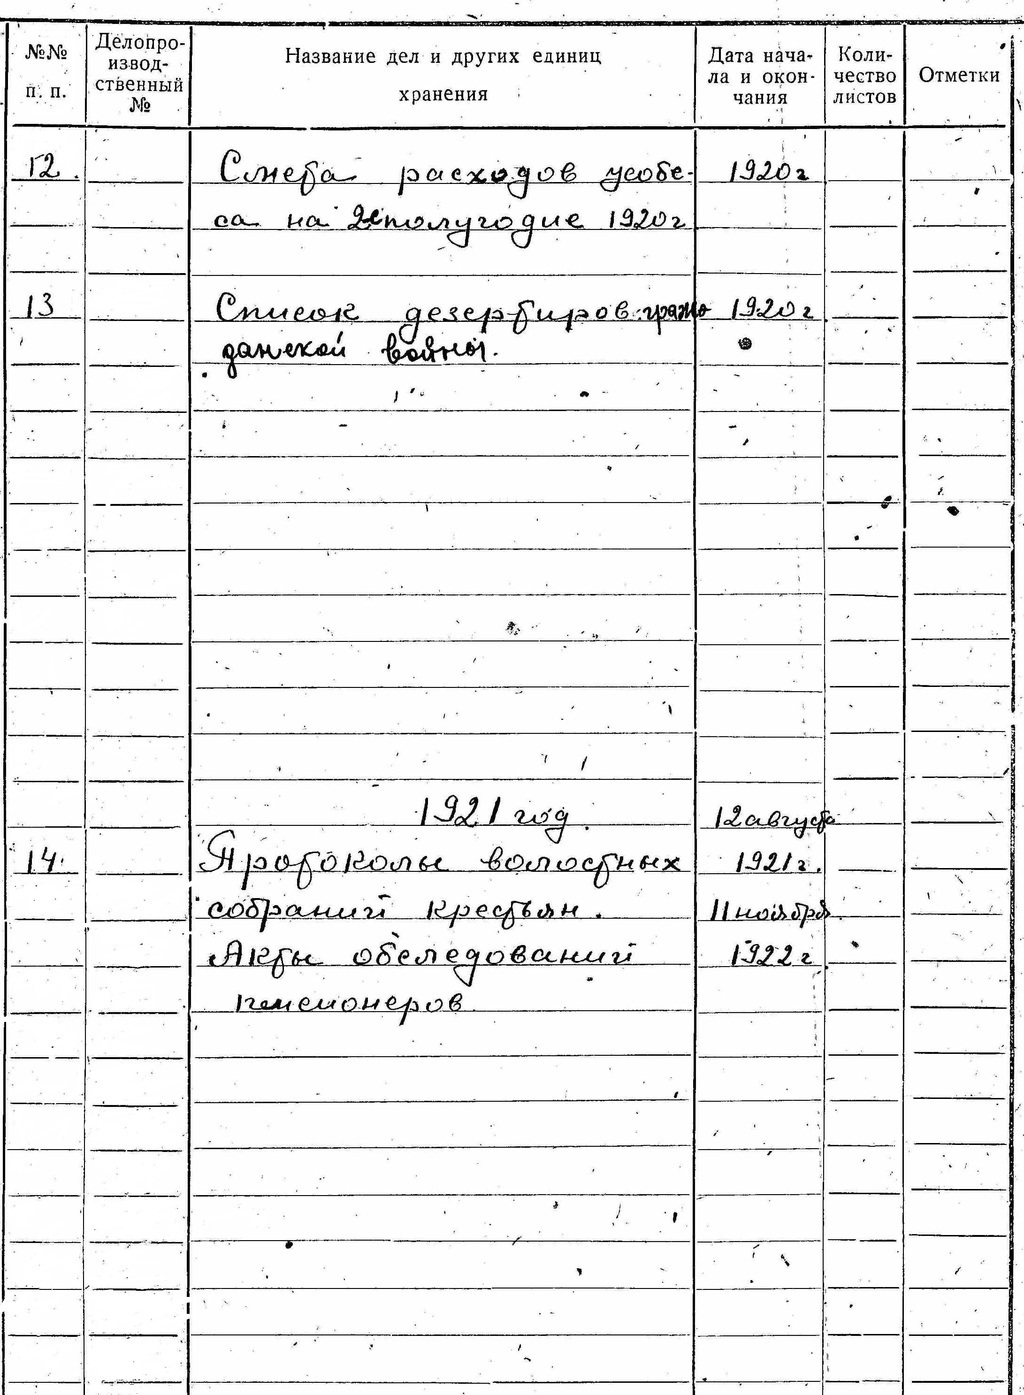 №№ п. п.
Делопро-
извод-
ственный
№
Название дел и других единиц
хранения
Дата нача-
ла и окон-
чания
Коли-
чество
листов
Отметки
12. Смета расходов усобе- 1920г
са на 2е полугодие 1920г
13 Список дезертиров граж 1920г
данской войны.
1921 год. 12 августа
14. Протоколы волостных 1921г.
собраний крестьян. 11 ноября
Акты обследований 1922г
пенсионеров